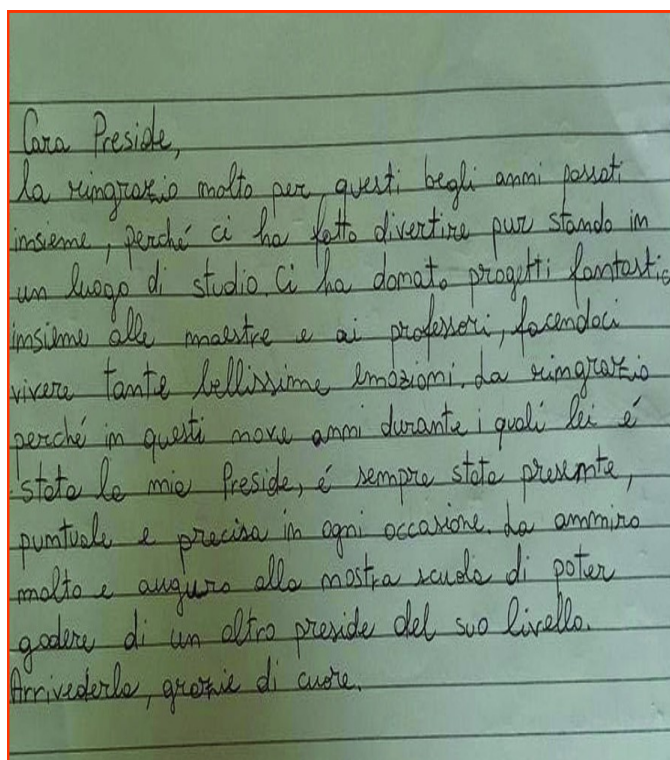 Cara Preside,
la ringrazio molto per questi begli anni passati
insieme, perché ci ha fatto divertire pur stando in
un luogo di studio. Ci ha donato progetti fantastic
insieme alle maestre e ai professori, facendoci
vivere tante bellissime emozioni. La ringrazio
perché in questi nove anni durante i quali lei é
stata la mia Preside, é sempre stata presente,
puntuale e precisa in ogni occasione. La ammiro
molto e auguro alla nostra scuola di poter
godere di un altro preside del suo livello.
Arrivederla, grazie di cuore.